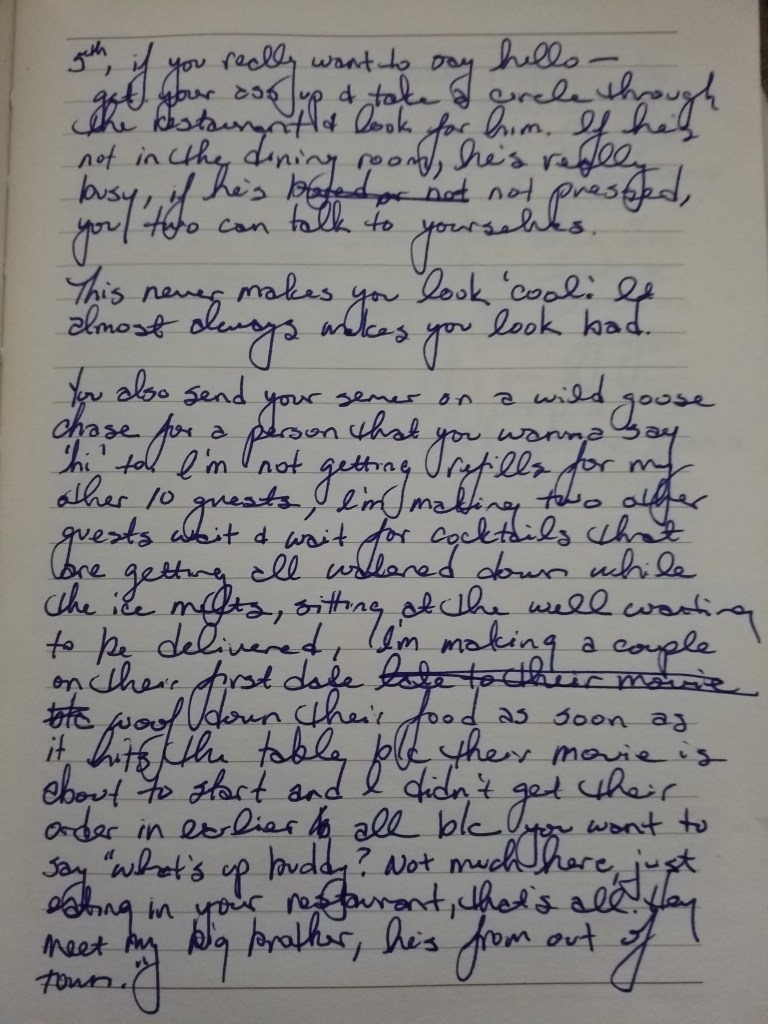 5th, if you really want to say hello —
get your ass up & take a circle through
the restaurant & look for him. If he's
not in the dining room, he's really
busy, if he's bored or not not pressed,
you two can talk to yourselves.
This never makes you look 'cool.' It
almost always makes you look bad.
You also send your server on a wild goose
chase for a person that you wanna say
'hi' to. I'm not getting refills for my
other 10 guests, I'm making two other
guests wait & wait for cocktails that
are getting all watered down while
the ice melts, sitting at the well waiting
to be delivered, I'm making a couple
on their first date late to their movie
b/c woof down their food as soon as
it hits the table b/c their movie is
about to start and I didn't get their
order in earlier all b/c you want to
say "what's up buddy? Not much here, just
eating in your restaurant, that's all. Hey
meet my big brother, he's from out of
town."